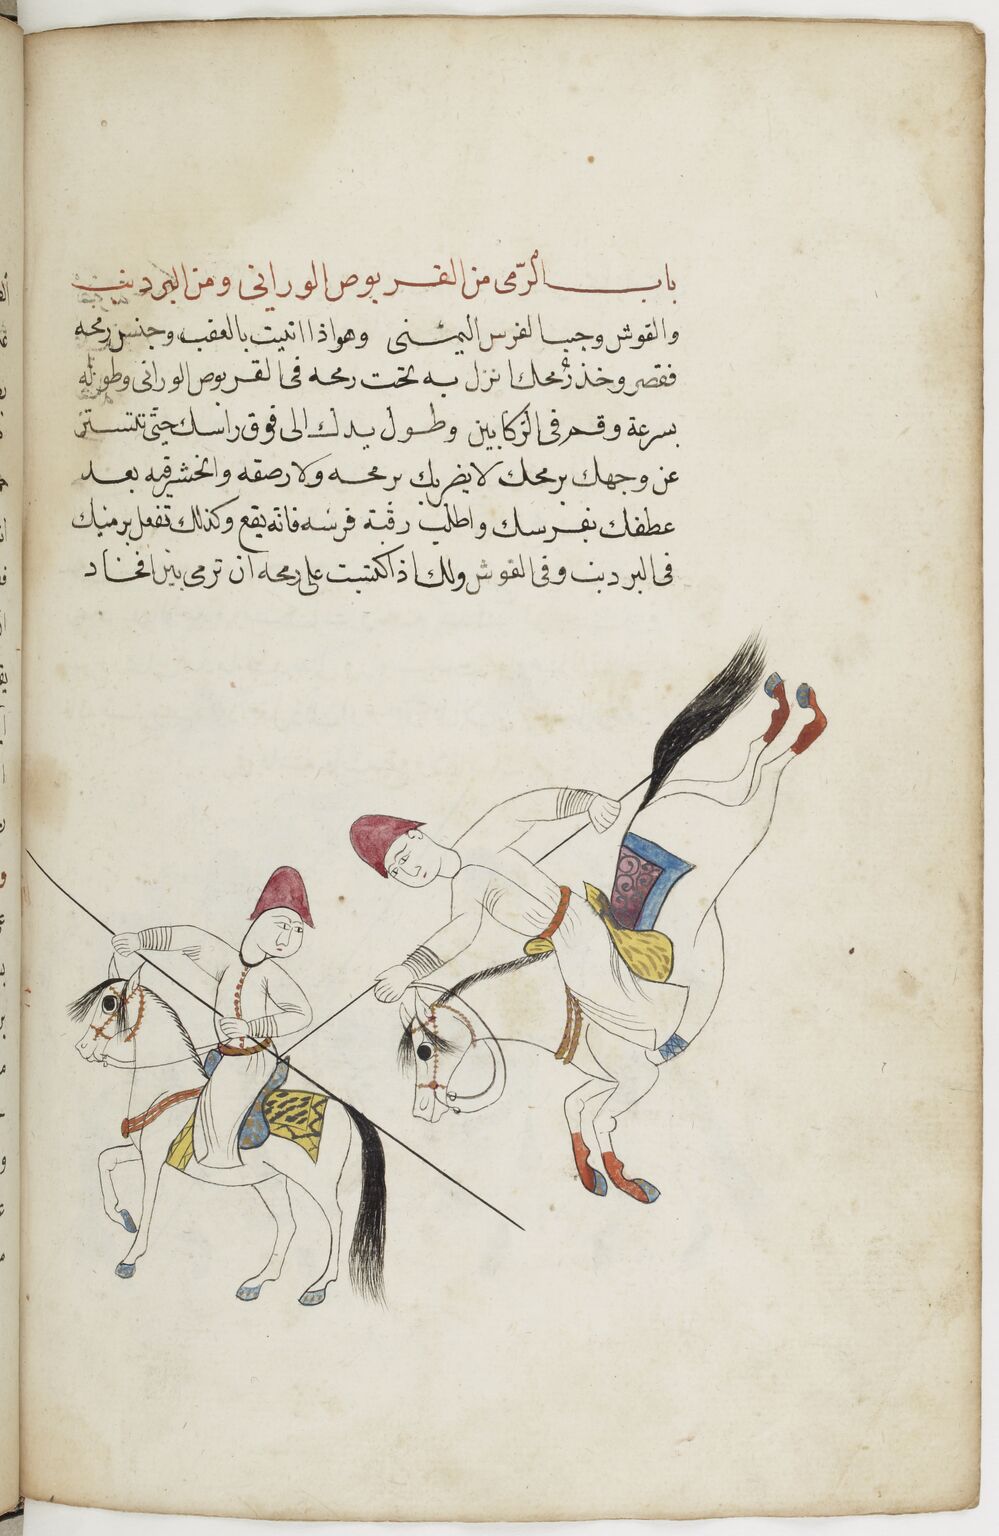 باب الرّمى من القربوص الورانى ومن البردنب
والقوش وجبا الفرس اليمنى وهو اذا اتيت بالعقب وجنس رمحه
فقصر وخذ رمحك انزل به تحت رمحه فى القربوص الورانى وطوله
بسرعة وقم فى الركابين وطول يدك الى فوق راسك حتى تلتستر
عن وجهك برمحك لا يضربك برمحه ولا رصقه وانخشر فيه بعد
عطفك بفرسك واطلب رقبة فرسه فانه يقع وكذلك تفعل برميك
فى البردنب وفى القوش ولك اذا كتبت على رمحه ان ترمى بين افخاد